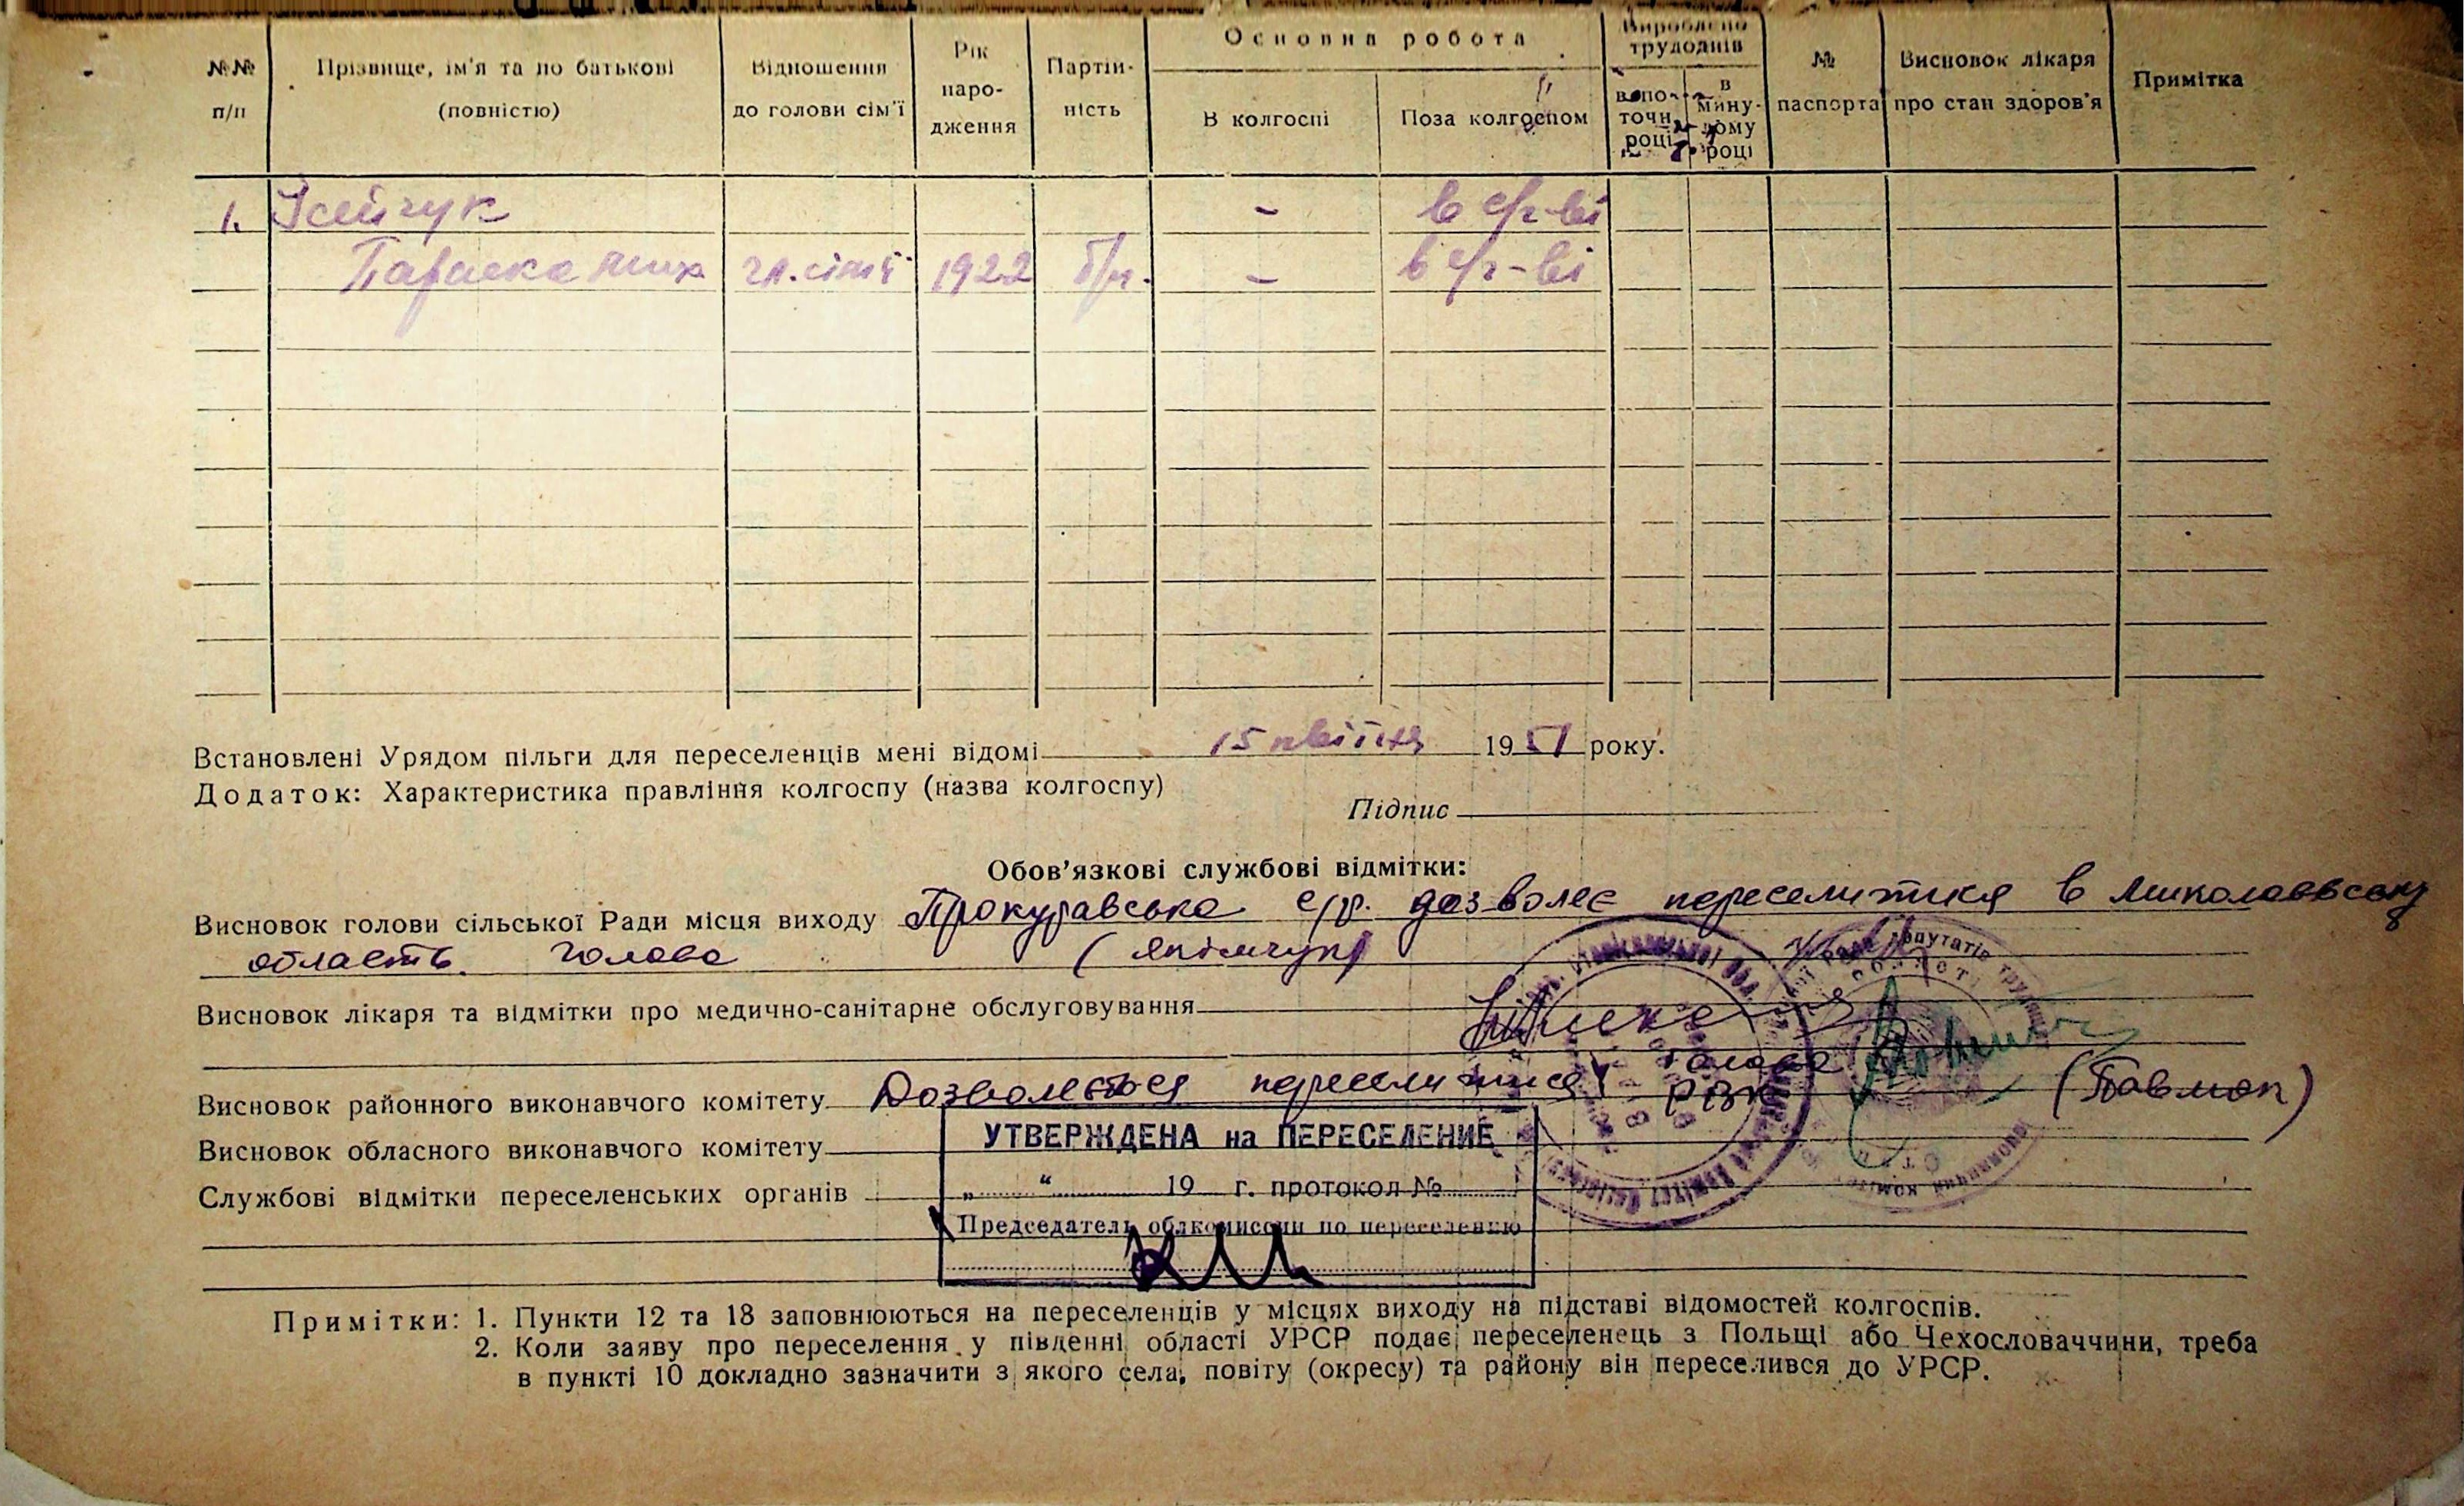 №№ п/п
Прізвище, ім'я та по батькові (повністю)
Відношення до голови сім'ї
Рік народження
Партійність
Основна робота
В колгоспі
Поза колгоспом
Вироблено трудоднів
в поточн. році
в минулому році
№ паспорта
Висновок лікаря про стан здоров'я
Примітка
1. - в с/г-ві
Параска гл. сім'ї 1922 б/п. - в с/г-ві
Встановлені Урядом пільги для переселенців мені відомі 15 квітня 1951 року.
Додаток: Характеристика правління колгоспу (назва колгоспу)
Підпис
Обов'язкові службові відмітки:
Висновок голови сільської Ради місця виходу Прокуравська с/р. дозволяє переселитися в Миколаївську
область. Голова (Якімчук)
Висновок лікаря та відмітки про медично-санітарне обслуговування
Голова
Висновок районного виконавчого комітету Дозволяється переселитися РВК (Павлюк)
УТВЕРЖДЕНА на ПЕРЕСЕЛЕНИЕ
Висновок обласного виконавчого комітету
Службові відмітки переселенських органів
„ “ 19 г. протокол №
Председатель облкомиссии по переселению
Примітки: 1. Пункти 12 та 18 заповнюються на переселенців у місцях виходу на підставі відомостей колгоспів.
2. Коли заяву про переселення у південні області УРСР подає переселенець з Польщі або Чехословаччини, треба
в пункті 10 докладно зазначити з якого села, повіту (окресу) та району він переселився до УРСР.